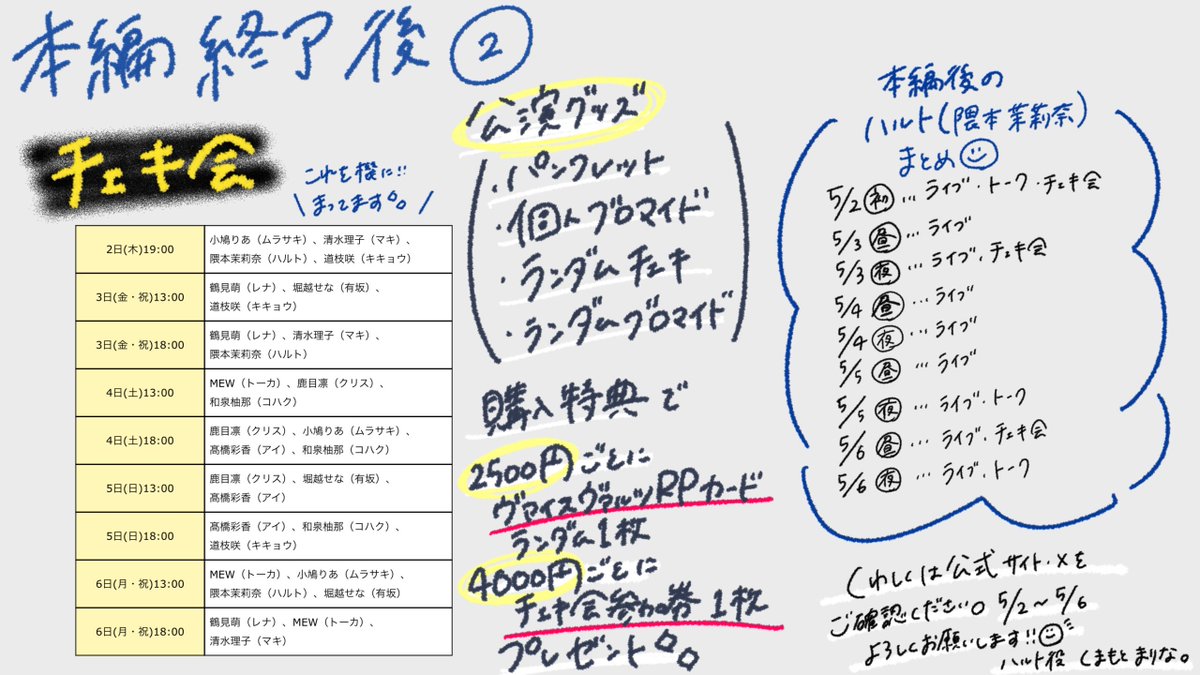 本編終了後②
チェキ会
これを機に!!
\まってます。。/
2日(木)19:00
小鳩りあ（ムラサキ）、清水理子（マキ）、
隈本茉莉奈（ハルト）、道枝咲（キキョウ）
3日(金・祝)13:00
鶴見萌（レナ）、堀越せな（有坂）、
道枝咲（キキョウ）
3日(金・祝)18:00
鶴見萌（レナ）、清水理子（マキ）、
隈本茉莉奈（ハルト）
4日(土)13:00
MEW（トーカ）、鹿目凛（クリス）、
和泉柚那（コハク）
4日(土)18:00
鹿目凛（クリス）、小鳩りあ（ムラサキ）、
髙橋彩香（アイ）、和泉柚那（コハク）
5日(日)13:00
鹿目凛（クリス）、堀越せな（有坂）、
髙橋彩香（アイ）
5日(日)18:00
髙橋彩香（アイ）、和泉柚那（コハク）、
道枝咲（キキョウ）
6日(月・祝)13:00
MEW（トーカ）、小鳩りあ（ムラサキ）、
隈本茉莉奈（ハルト）、堀越せな（有坂）
6日(月・祝)18:00
鶴見萌（レナ）、MEW（トーカ）、
清水理子（マキ）
公演グッズ
・パンフレット
・個人ブロマイド
・ランダムチェキ
・ランダムブロマイド
購入特典で
2500円ごとに
ヴァイスヴァルツRPカード
ランダム1枚
4000円ごとに
チェキ会参加券1枚
プレゼント。。
本編後の
ハルト(隈本茉莉奈)
まとめ
5/2 初 … ライブ・トーク・チェキ会
5/3 昼 … ライブ
5/3 夜 … ライブ・チェキ会
5/4 昼 … ライブ
5/4 夜 … ライブ
5/5 昼 … ライブ
5/5 夜 … ライブ・トーク
5/6 昼 … ライブ・チェキ会
5/6 夜 … ライブ・トーク
くわしくは公式サイト・Xを
ご確認ください。5/2～5/6
よろしくお願いします!!
ハルト役 くまもとまりな。